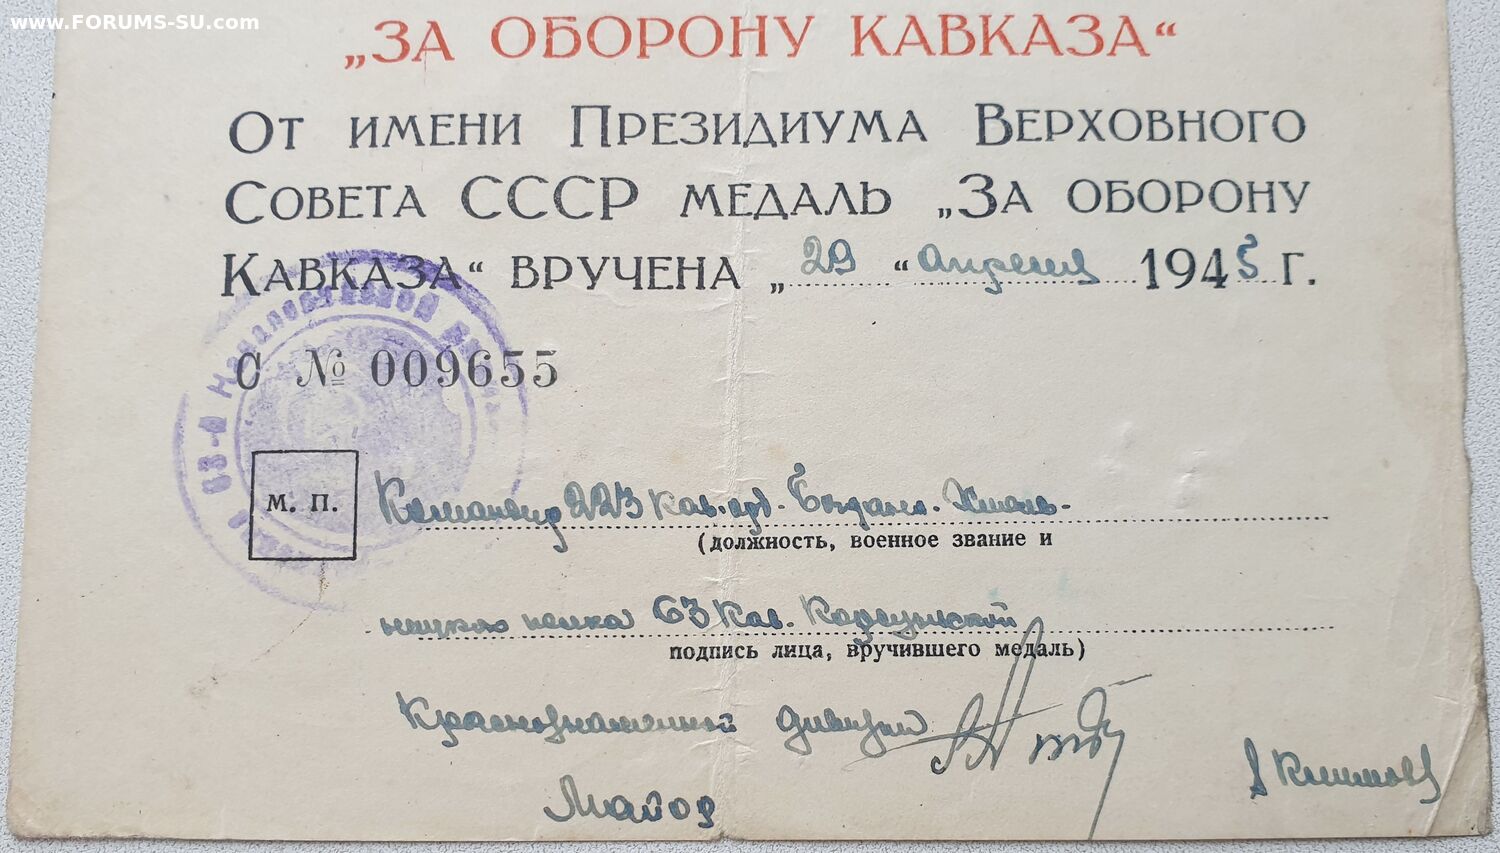 www.FORUMS-SU.com
„ЗА ОБОРОНУ КАВКАЗА“
От имени Президиума Верховного
Совета СССР медаль „За оборону
Кавказа“ вручена „29“ апреля 1945 г.
С № 009655
М. П.
Командир 223 Кав. орд. Богдана. Хмель-
(должность, военное звание и
ницкого полка 63 Кав. Корсунской
подпись лица, вручившего медаль)
Краснознаменной дивизии
Майор